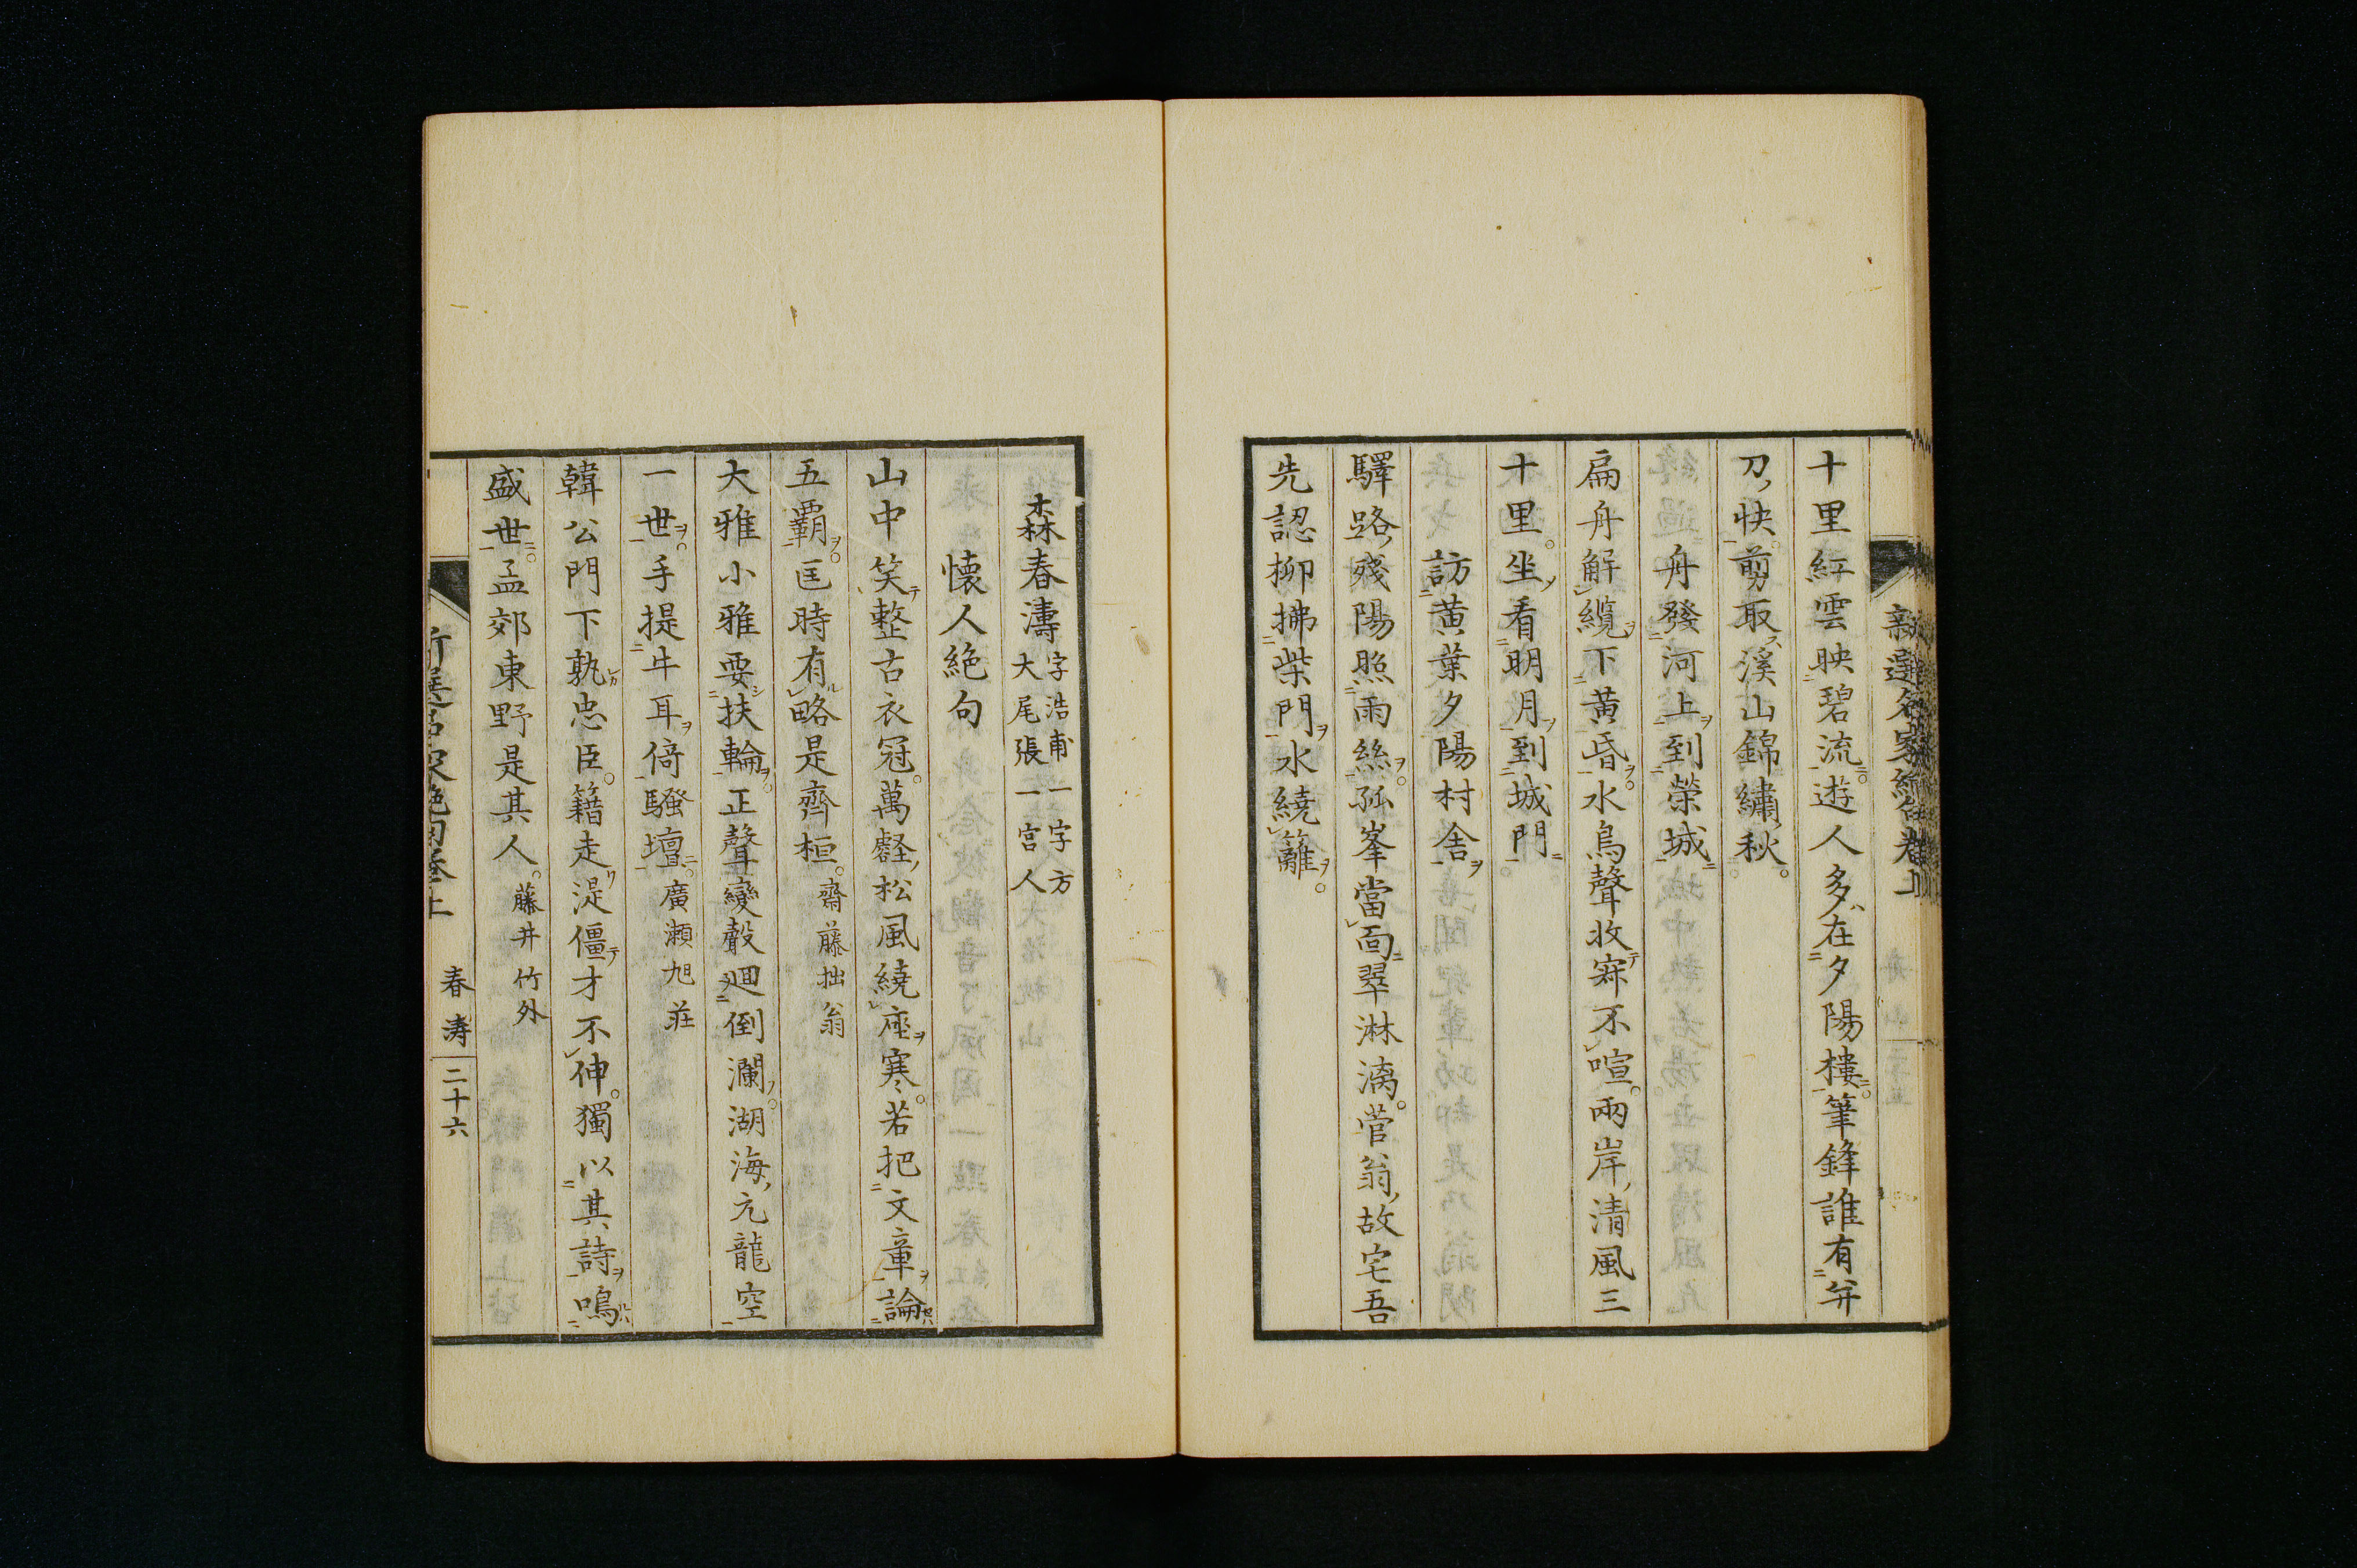 十里紅雲映碧流遊人多在夕陽樓筆鋒誰有幷
刀快剪取溪山錦繡秋
舟發河上到榮城
扁舟解纜下黃昏水鳥聲收寂不喧兩岸清風三
十里坐看明月到城門
訪黃葉夕陽村舍
驛路殘陽照雨絲孤峯當面翠淋漓菅翁故宅吾
先認柳拂柴門水繞籬
森春濤 字浩甫一字方
大尾張一宮人
懷人絕句
山中笑整古衣冠萬壑松風繞座寒若把文章論
五霸匡時有略是齊桓 齋藤拙翁
大雅小雅要扶輪正聲變聲廻倒瀾湖海元龍空
一世手提牛耳倚騷壇 廣瀨旭莊
韓公門下孰忠臣籍走湜僵才不伸獨以其詩鳴
盛世孟郊東野是其人 藤井竹外
春濤 二十六